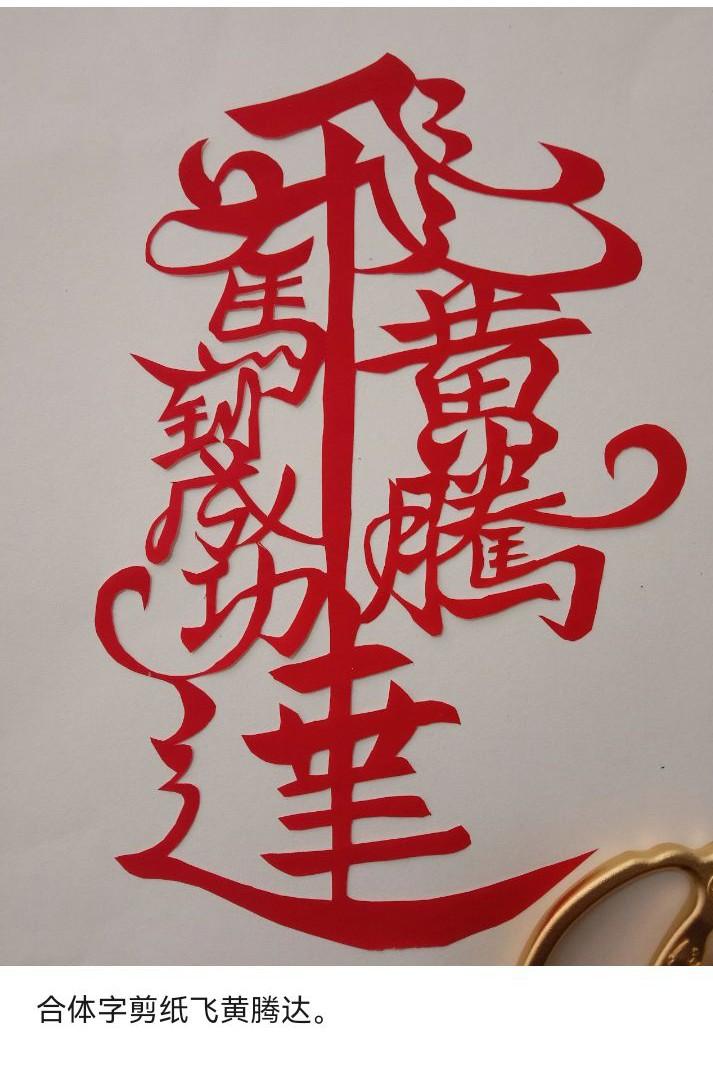 飛黄騰達
馬到成功
合体字剪纸飞黄腾达。